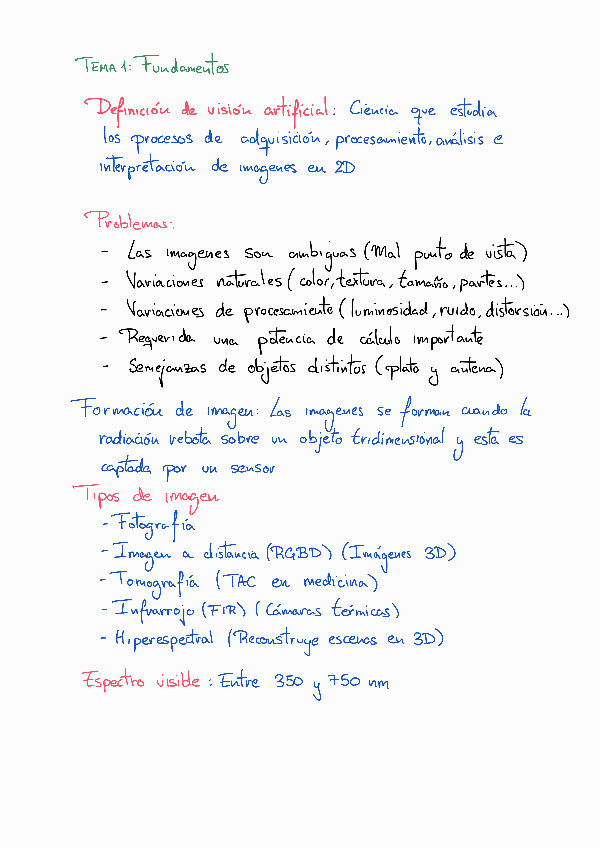 TEMA 1: Fundamentos
Definición de visión artificial: Ciencia que estudia
los procesos de adquisición, procesamiento, análisis e
interpretación de imagenes en 2D
Problemas:
- Las imagenes son ambiguas (Mal punto de vista)
- Variaciones naturales (color, textura, tamaño, partes...)
- Variaciones de procesamiento (luminosidad, ruido, distorsión...)
- Requerida una potencia de cálculo importante
- Semejanzas de objetos distintos (plato y antena)
Formación de imagen: Las imagenes se forman cuando la
radiación rebota sobre un objeto tridimensional y esta es
captada por un sensor
Tipos de imagen
- Fotografía
- Imagen a distancia (RGBD) (Imágenes 3D)
- Tomografía (TAC en medicina)
- Infrarrojo (FIR) (Cámaras térmicas)
- Hiperespectral (Reconstruye escenas en 3D)
Espectro visible: Entre 350 y 750 nm